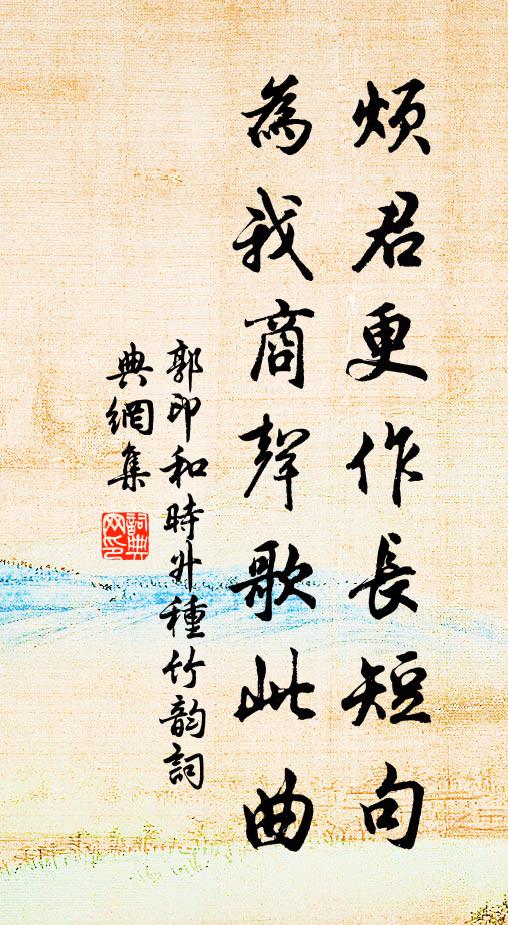 煩君更作長短句
為我商聲歌此曲
郭印和時升種竹韵詞
典網集
詞典網印